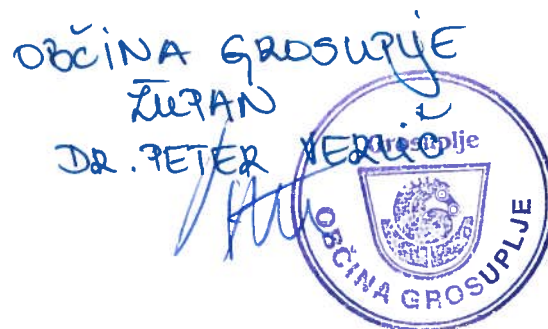 OBČINA GROSUPLJE
ŽUPAN
DR. PETER VERLIČ
Grosuplje
OBČINA GROSUPLJE